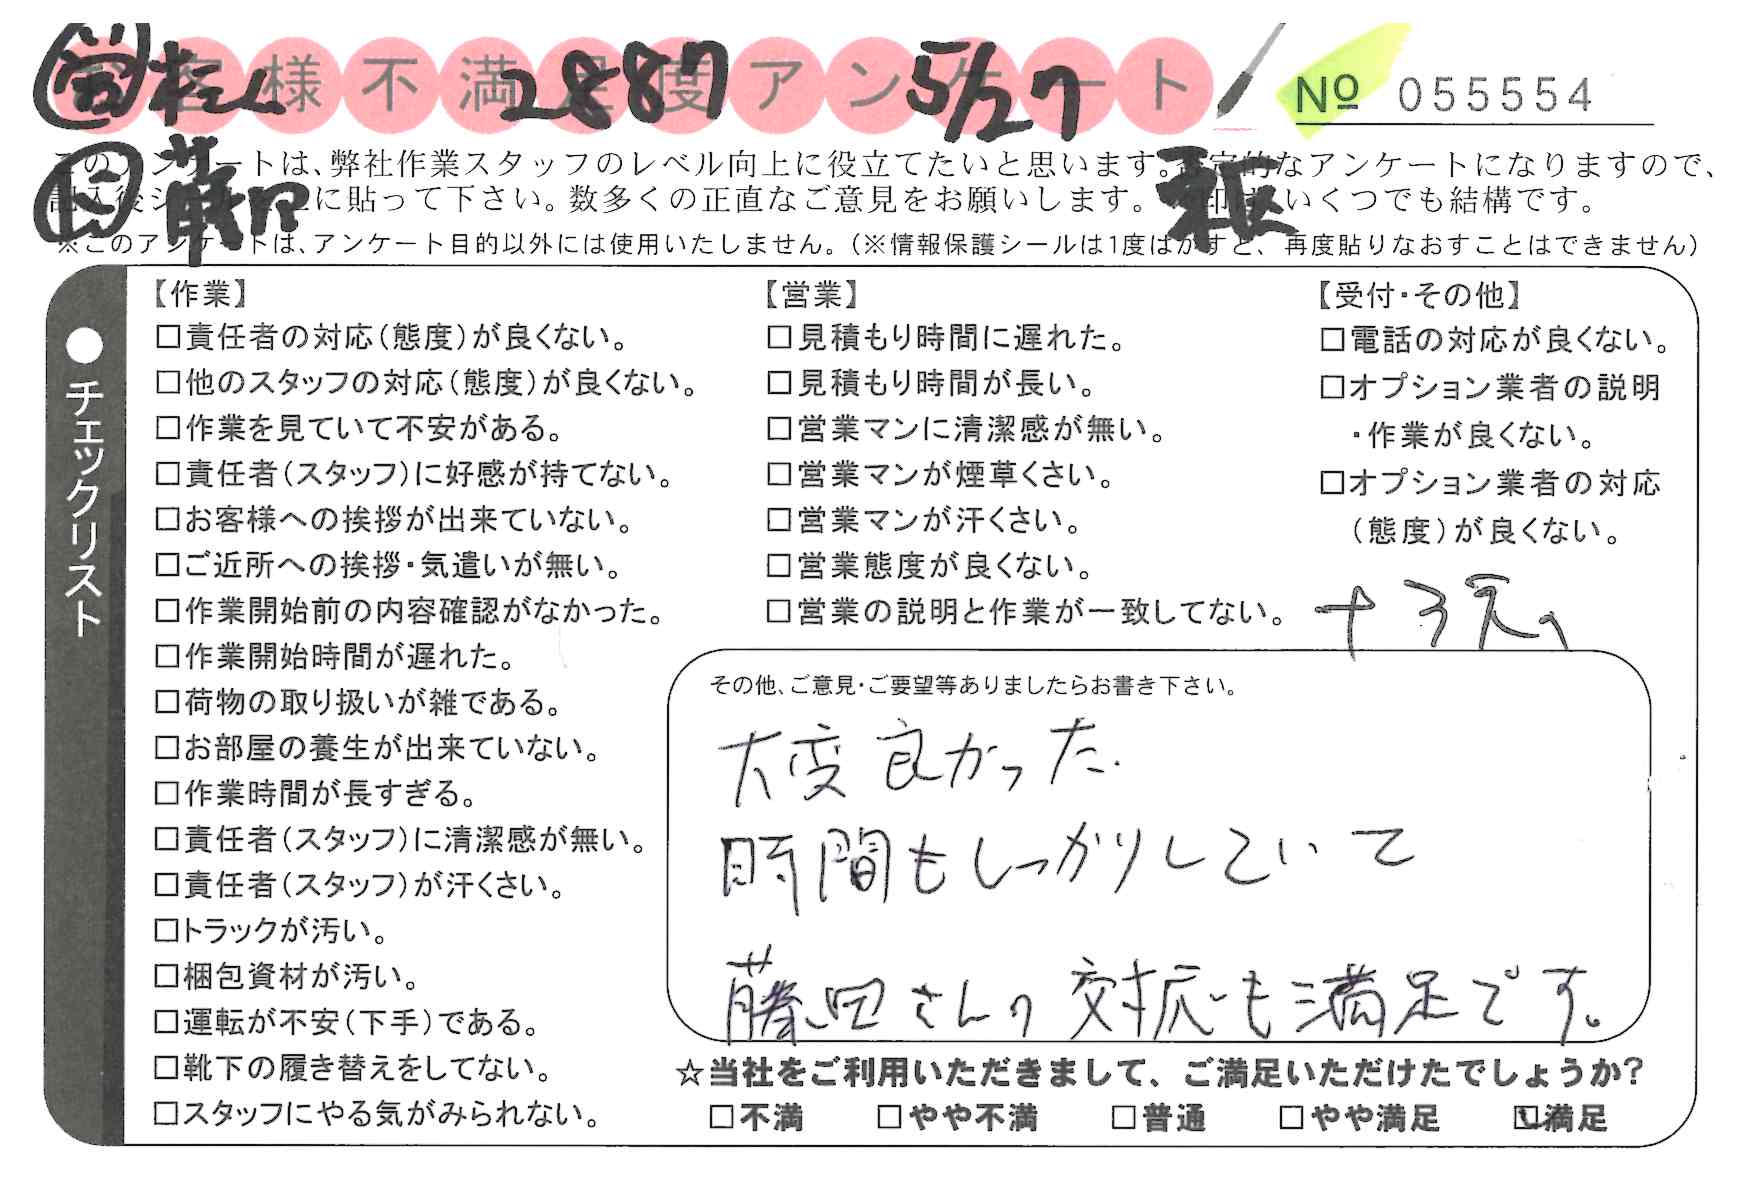 お客様不満足度アンケート
2887
5/27
№ 055554
このアンケートは、弊社作業スタッフのレベル向上に役立てたいと思います。否定的なアンケートになりますので、
に貼って下さい。数多くの正直なご意見をお願いします。 いくつでも結構です。
※このアンケートは、アンケート目的以外には使用いたしません。(※情報保護シールは1度はがすと、再度貼りなおすことはできません)
●チェックリスト
【作業】
□責任者の対応(態度)が良くない。
□他のスタッフの対応(態度)が良くない。
□作業を見ていて不安がある。
□責任者(スタッフ)に好感が持てない。
□お客様への挨拶が出来ていない。
□ご近所への挨拶・気遣いが無い。
□作業開始前の内容確認がなかった。
□作業開始時間が遅れた。
□荷物の取り扱いが雑である。
□お部屋の養生が出来ていない。
□作業時間が長すぎる。
□責任者(スタッフ)に清潔感が無い。
□責任者(スタッフ)が汗くさい。
□トラックが汚い。
□梱包資材が汚い。
□運転が不安(下手)である。
□靴下の履き替えをしてない。
□スタッフにやる気がみられない。
【営業】
□見積もり時間に遅れた。
□見積もり時間が長い。
□営業マンに清潔感が無い。
□営業マンが煙草くさい。
□営業マンが汗くさい。
□営業態度が良くない。
□営業の説明と作業が一致してない。
【受付・その他】
□電話の対応が良くない。
□オプション業者の説明
・作業が良くない。
□オプション業者の対応
(態度)が良くない。
その他、ご意見・ご要望等ありましたらお書き下さい。
大変良かった.
時間もしっかりしていて
藤田さんの対応も満足です。
☆当社をご利用いただきまして、ご満足いただけたでしょうか?
□不満 □やや不満 □普通 □やや満足 ☑満足